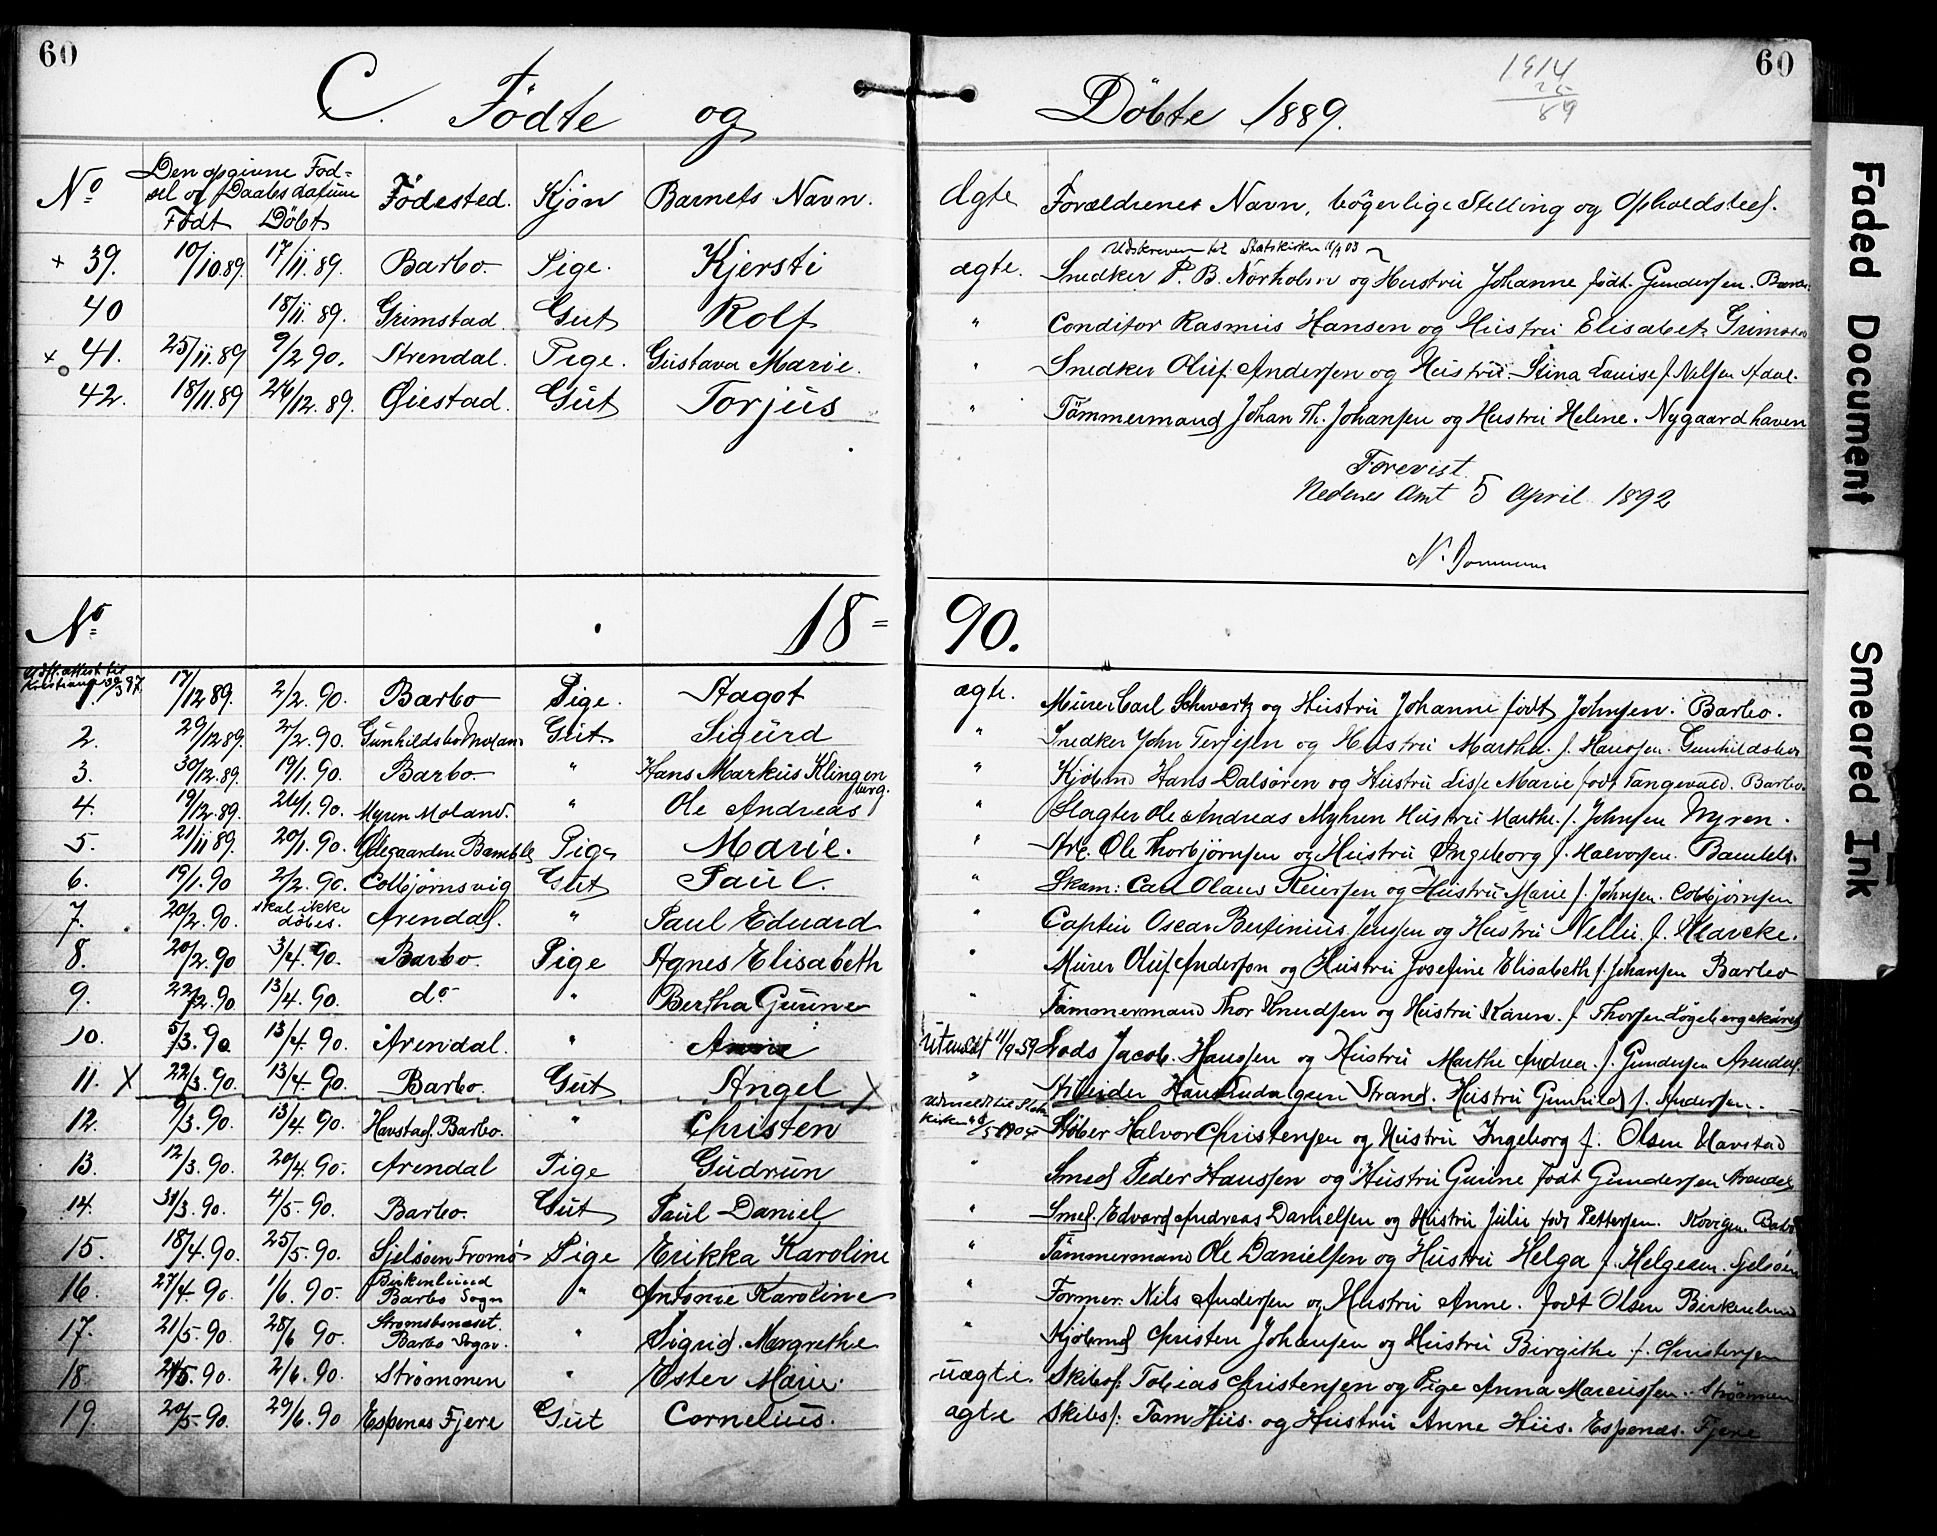 60
C. Fødte og Døbte 1889.
1914
25
89
60
No
Den opgivne Fød-
sel og Daabsdatum
Født Døbt
Fødested.
Kjøn
Barnets Navn.
Ægte
Forældrenes Navn, bogerlige Stilling og Opholdsted.
Udskreven til Statskirken 11/9 03
+ 39. 10/10.89. 17/11.89. Barbo. Pige. Kjersti ægte. Snedker P. B. Norholm og Hustru Johanne født. Gundersen. Barbo.
40 18/11.89. Grimstad Gut Rolf " Conditor Rasmus Hansen og Hustru Elisabet Grimstad
+ 41. 25/11.89 9/2 90. Arendal. Pige. Gustava Marie. " Snedker Oluf Andersen og Hustru Stina Louise f. Nelsen Adal.
42. 18/11.89 26/12.89. Øiestad. Gut Torjus " Tømmermand Johan Th. Johansen og Hustru Helene. Nygaardhaven
Forevist
Nedenes Amt 5 April 1892
No 18=90.
Udst. attest til
Kristiania 30/3 97
1. 17/12 89. 2/2.90. Barbo Pige. Aagot ægte. Murer Carl Schwartz og Hustru Johanne født Johnsen. Barbo.
2. 29/12 89. 2/2.90. Gunhildsbo Moland Gut. Sigurd " Snedker John Terjesen og Hustru Martha. f. Hanssen. Gunhildsbo
3. 30/12.89. 19/1.90. Barbo " Hans Markus Klingen
berg. " Kjøbmd Hans Dalsøren og Hustru Lisse Marie født Tangevald. Barbo.
4. 19/12.89. 26/1.90. Myren Moland. " Ole Andreas " Slagter Ole Andreas Myhren Hustru Marthe. f. Johnsen Myren.
5. 21/11 89. 20/1.90. Ødegaarden Bamble Pige Marie. " Arb. Ole Thorbjørnsen og Hustru Ingeborg f. Halvorsen. Bamble.
6. 19/1.90 2/2.90. Colbjørnsvig Gut Paul. " Skom: Carl Olaus Reiersen og Hustru Marie f. Johnsen. Colbjørnsen
7. 20/2.90. skal ikke
døbes. Arendal. " Paul Eduard " Captein Oscar Bertinius Jenssen og Hustru Nelli f. Klarcke.
8. 20/2.90 3/4.90. Barbo. Pige Agnes Elisabeth " Murer Oluf Anderson og Hustru Josefine Elisabeth f. Johansen Barbo
9. 22/2.90 13/4.90. do " Bertha Gunne " Tømmermand Thor Knudsen og Hustru Karen. f. Thorsen Løgebergskaret
10. 5/3.90 13/4.90. Arendal. " Anna Utmeldt 11/9-59 Lods Jacob. Hanssen og Hustru Marthe Andrea. f. Gundersen Arendal.
11. X 22/3.90. 13/4.90. Barbo Gut Angel X " Arbeider Hans Strand. Hustru Gunhild f. Andersen.
Udmeldt til Stats
kirken 5-1905
12. 9/3.90. 13/4.90. Havstad. Barbo. " Christen Støber Halvor Christensen og Hustru Ingeborg f. Olsen Havstad
13. 12/3.90. 20/4.90. Arendal Pige Gudrun " Smed Peder Hanssen og Hustru Gunne født Gundersen Arendal
14. 31/3.90. 4/5-90. Barbo. Gut Paul Daniel " Smed. Edvard Andreas Danielsen og Hustru Julie født Pettersen. Kovigen Barbo
15. 18/4.90. 25/5.90. Gjelsøen Tromø Pige Erikka Karoline " Tømmermand Ole Danielsen og Hustru Helga f. Helgesen. Gjelsøen
16. 27/4.90. 1/6.90. Birkenlund
Barbo Sogn " Antonie Karoline " Former. Nils Andersen og Hustru Anne. født Olsen Birkenlund
17. 21/5.90. 28/6 90. Strømsbuneset.
Barbo Sogn. " Sigrid. Margrethe " Kjøbmd Christen Johansen og Hustru Birgithe f. Christensen
18. 24/5.90. 2/6.90. Strømmen " Ester Marie. uægte. Skibsf: Tobias Christensen og Pige Anna Marcussen. Strømmen
19. 20/5-90. 29/6.90 Espenes Fjere Gut Cornelius. ægte Skibsf: Tom Hiis. og Hustru Anne Hiis. Espenæs. Fjere
Faded Document
Smeared Ink